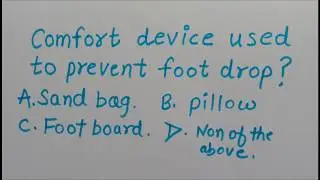 Comfort device used
to prevent foot drop?
A. Sand bag. B. pillow
C. Foot board. D. Non of the
above.